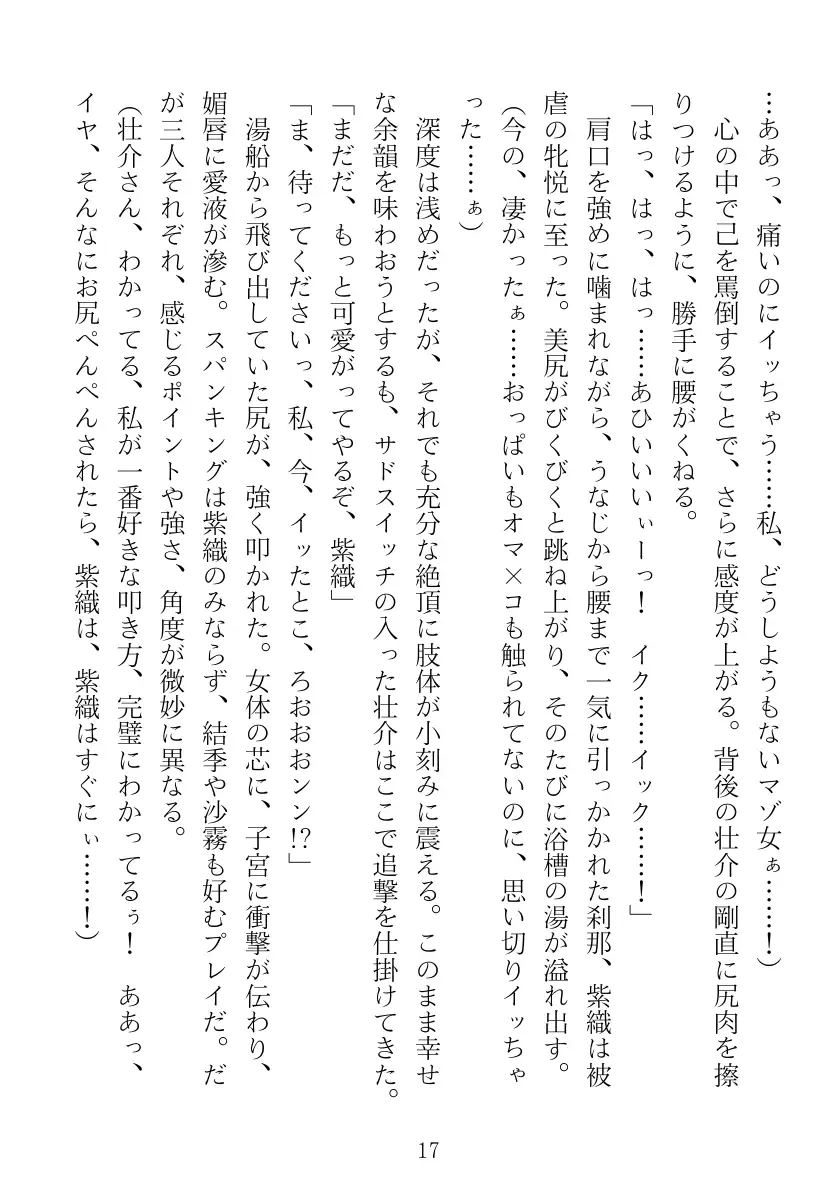 …ああっ、痛いのにイッちゃう……私、どうしようもないマゾ女ぁ……！）
　心の中で己を罵倒することで、さらに感度が上がる。背後の壮介の剛直に尻肉を擦
りつけるように、勝手に腰がくねる。
「はっ、はっ、はっ……あひいいいぃーっ！　イク……イック……！」
　肩口を強めに噛まれながら、うなじから腰まで一気に引っかかれた刹那、紫織は被
虐の牝悦に至った。美尻がびくびくと跳ね上がり、そのたびに浴槽の湯が溢れ出す。
（今の、凄かったぁ……おっぱいもオマ×コも触られてないのに、思い切りイッちゃ
った……ぁ）
　深度は浅めだったが、それでも充分な絶頂に肢体が小刻みに震える。このまま幸せ
な余韻を味わおうとするも、サドスイッチの入った壮介はここで追撃を仕掛けてきた。
「まだだ、もっと可愛がってやるぞ、紫織」
「ま、待ってくださいっ、私、今、イッたとこ、ろおおおンン!?」
　湯船から飛び出していた尻が、強く叩かれた。女体の芯に、子宮に衝撃が伝わり、
媚唇に愛液が滲む。スパンキングは紫織のみならず、結季や沙霧も好むプレイだ。だ
が三人それぞれ、感じるポイントや強さ、角度が微妙に異なる。
（壮介さん、わかってる、私が一番好きな叩き方、完璧にわかってるぅ！　ああっ、
イヤ、そんなにお尻ぺんぺんされたら、紫織は、紫織はすぐにぃ……！）
17